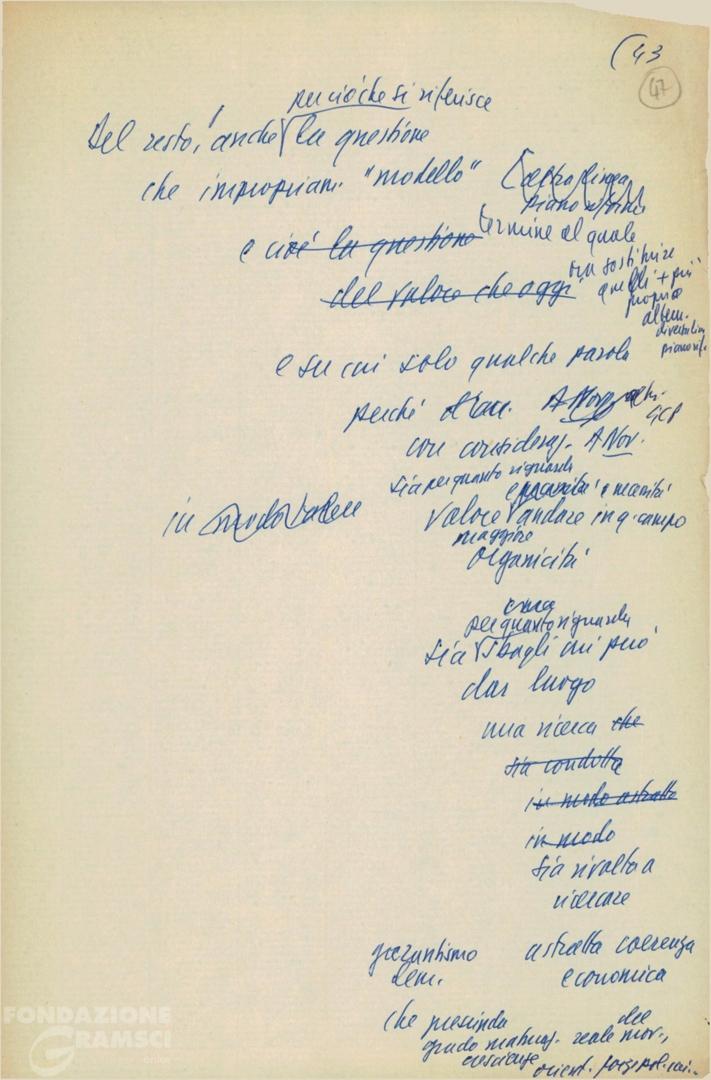 (43
47
per ciò che si riferisce
Del resto, anche la questione
che impropriam. "modello"
[altra linea
piano riforme
e cioè la questione termine al quale
del valore che oggi
ora sostituire
quelli + più
propri
altern.
piano rif.
e su cui solo qualche parola
perché d'acc. A Nov.
con consideraz. A Nov.
sia per quanto riguarda
e necessità
in modo tale
valore andare in q. campo
maggiore
organicità
per quanto riguarda
sia sbagli cui può
dar luogo
una ricerca che
sia condotta
in modo astratto
in modo
sia rivolta a
ricercare
garantismo astratta coerenza
dem. economica
che prescinda del
grado maturaz. reale mov.,
coscienze orient. forze pol.
FONDAZIONE
GRAMSCI
onlus